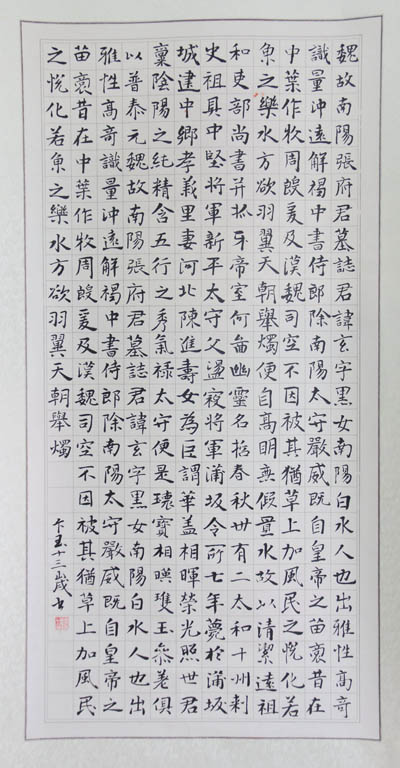 魏故南陽張府君墓誌君諱玄字黑女南陽白水人也出雅性高奇
識量沖遠解褐中書侍郎除南陽太守嚴威既自皇帝之苗裔昔在
中葉作牧周殷爰及漢魏司空不因被其猶草上加風民之悅化若
魚之樂水方欲羽翼天朝舉燭便自高明無假置水故以清潔遠祖
和吏部尚書并抓牙帝室何啚幽靈名括春秋世有二太和十州刺
史祖具中堅將軍新平太守父盪寇將軍蒲坂令所七年薨於蒲坂
城建中鄉孝義里妻河北陳進壽女為巨謂華盖相暉榮光照世君
稟陰陽之純精含五行之秀氣禄太守便是瓌寶相暎雙玉參差俱
以普泰元魏故南陽張府君墓誌君諱玄字黑女南陽白水人也出
雅性高奇識量沖遠解褐中書侍郎除南陽太守嚴威既自皇帝之
苗裔昔在中葉作牧周殷爰及漢魏司空不因被其猶草上加風民
之悅化若魚之樂水方欲羽翼天朝舉燭
十三歲书